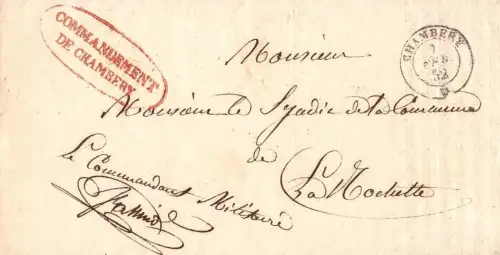 COMMANDEMENT
DE CHAMBERY
CHAMBERY
FEB
52
Monsieur
Monsieur le Syndic de la Commune
de
La Rochette
Le Commandant Militaire